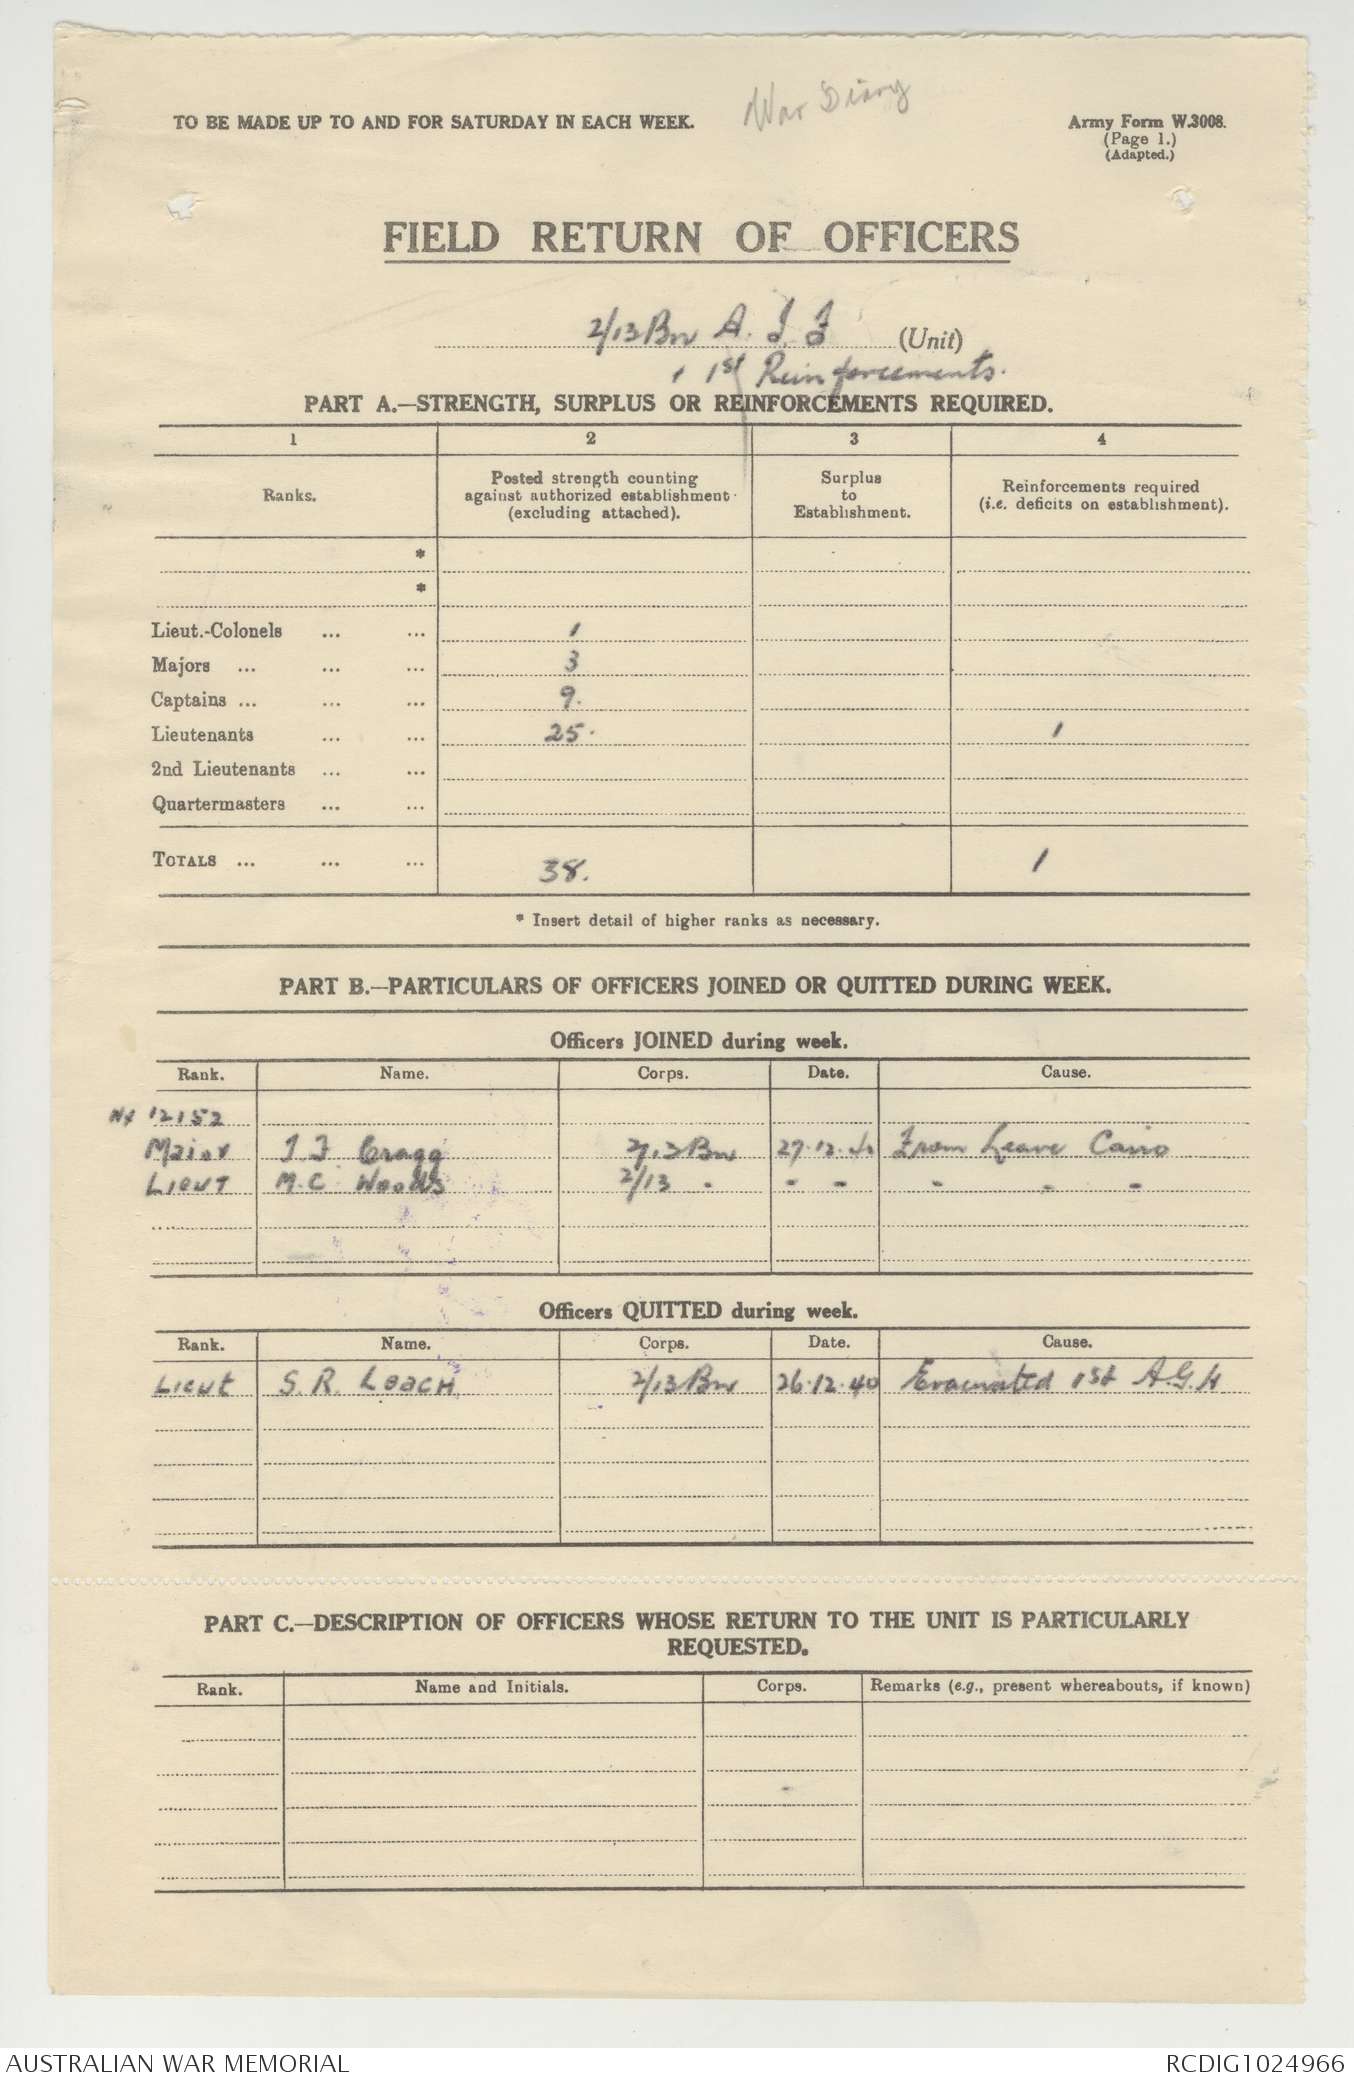 War Diary
TO BE MADE UP TO AND FOR SATURDAY IN EACH WEEK.
Army Form W.3008.
(Page 1.)
(Adapted.)
FIELD RETURN OF OFFICERS
2/13 Bn A. I. F (Unit)
1st Reinforcements.
PART A.—STRENGTH, SURPLUS OR REINFORCEMENTS REQUIRED.
1 2 3 4
Ranks. Posted strength counting against authorized establishment (excluding attached). Surplus to Establishment. Reinforcements required (i.e. deficits on establishment).
*
*
Lieut.-Colonels ... ... 1
Majors ... ... ... 3
Captains ... ... ... 9.
Lieutenants ... ... 25. 1
2nd Lieutenants ... ...
Quartermasters ... ...
TOTALS ... ... ... 38. 1
* Insert detail of higher ranks as necessary.
PART B.—PARTICULARS OF OFFICERS JOINED OR QUITTED DURING WEEK.
Officers JOINED during week.
Rank. Name. Corps. Date. Cause.
NX 12152
Major Cragg Bn 27.12.40 From Leave Cairo
Lieut M.C. Woods 2/13 " " " " " "
Officers QUITTED during week.
Rank. Name. Corps. Date. Cause.
Lieut S.R. LEACH 2/13 Bn 26.12.40 Evacuated 1st A.G.H
PART C.—DESCRIPTION OF OFFICERS WHOSE RETURN TO THE UNIT IS PARTICULARLY
REQUESTED.
Rank. Name and Initials. Corps. Remarks (e.g., present whereabouts, if known)
AUSTRALIAN WAR MEMORIAL
RCDIG1024966